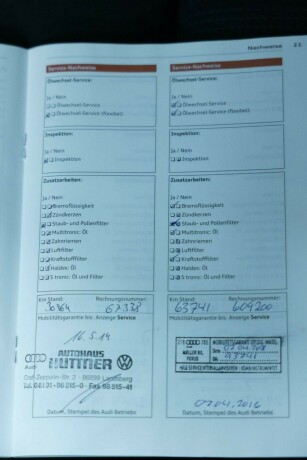 Nachweise 21
Service-Nachweise
Ölwechsel-Service:
Ja / Nein
Ölwechsel-Service
Ölwechsel-Service (flexibel)
Inspektion:
Ja / Nein
Inspektion
Zusatzarbeiten:
Ja / Nein
Bremsflüssigkeit
Zündkerzen
Staub- und Pollenfilter
Multitronic: Öl
Zahnriemen
Luftfilter
Kraftstofffilter
Haldex: Öl
S tronic: Öl und Filter
Km Stand: Rechnungsnummer:
Mobilitätsgarantie bis: Anzeige Service
16.5.14
Audi
AUTOHAUS
HÜTTNER
Datum, Stempel des Audi Betriebs
Service-Nachweise
Ölwechsel-Service:
Ja / Nein
Ölwechsel-Service
Ölwechsel-Service (flexibel)
Inspektion:
Ja / Nein
Inspektion
Zusatzarbeiten:
Ja / Nein
Bremsflüssigkeit
Zündkerzen
Staub- und Pollenfilter
Multitronic: Öl
Zahnriemen
Luftfilter
Kraftstofffilter
Haldex: Öl
S tronic: Öl und Filter
Km Stand: Rechnungsnummer:
63741 609200
Mobilitätsgarantie bis: Anzeige Service
07.04.2016
Datum, Stempel des Audi Betriebs